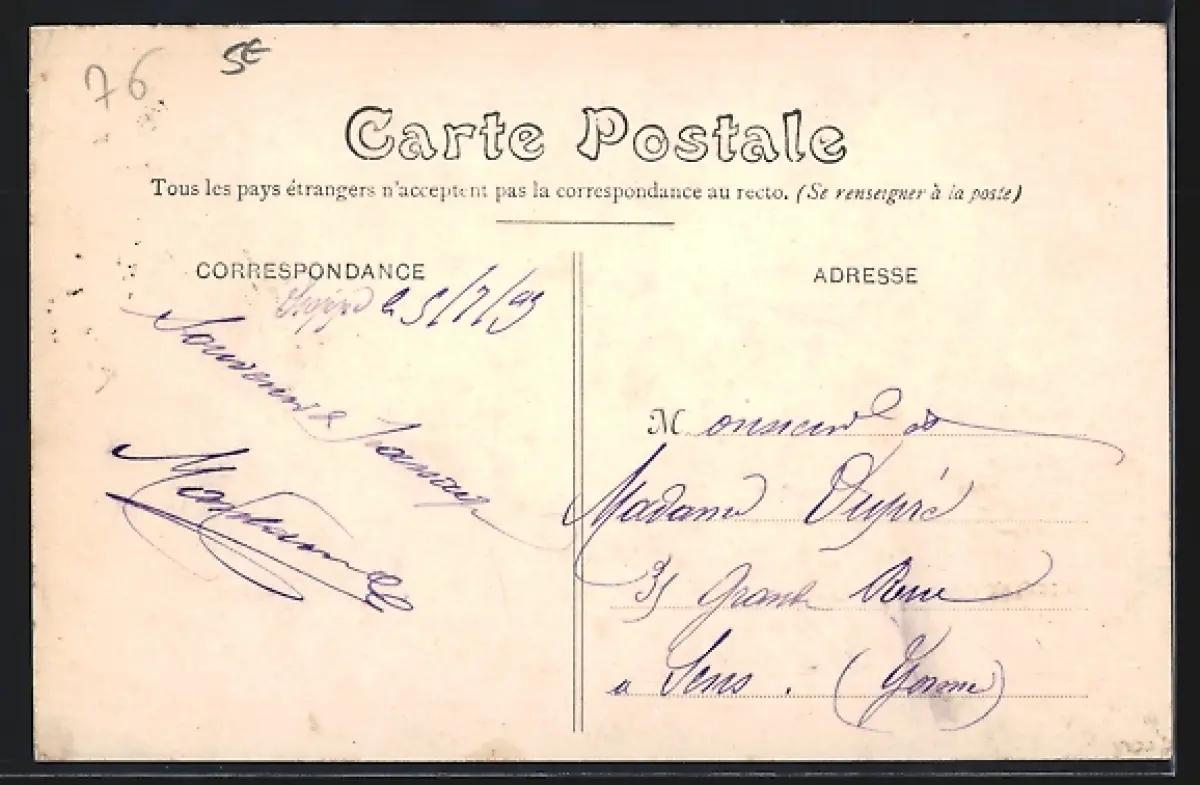 76
5€
Carte Postale
Tous les pays étrangers n'acceptent pas la correspondance au recto. (Se renseigner à la poste)
CORRESPONDANCE
ADRESSE
le 5/7/
Souvenir de
Monsieur et
Madame Dupré
35 Grande Rue
a Sens. (Yonne)